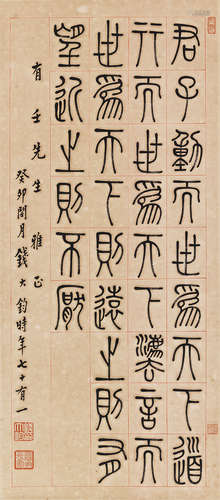 君子動而世爲天下道
行而世爲天下灋言而
世爲天下則遠之則有
望近之則不厭
有壬先生雅正
癸卯閏月錢大鈞時年七十有一